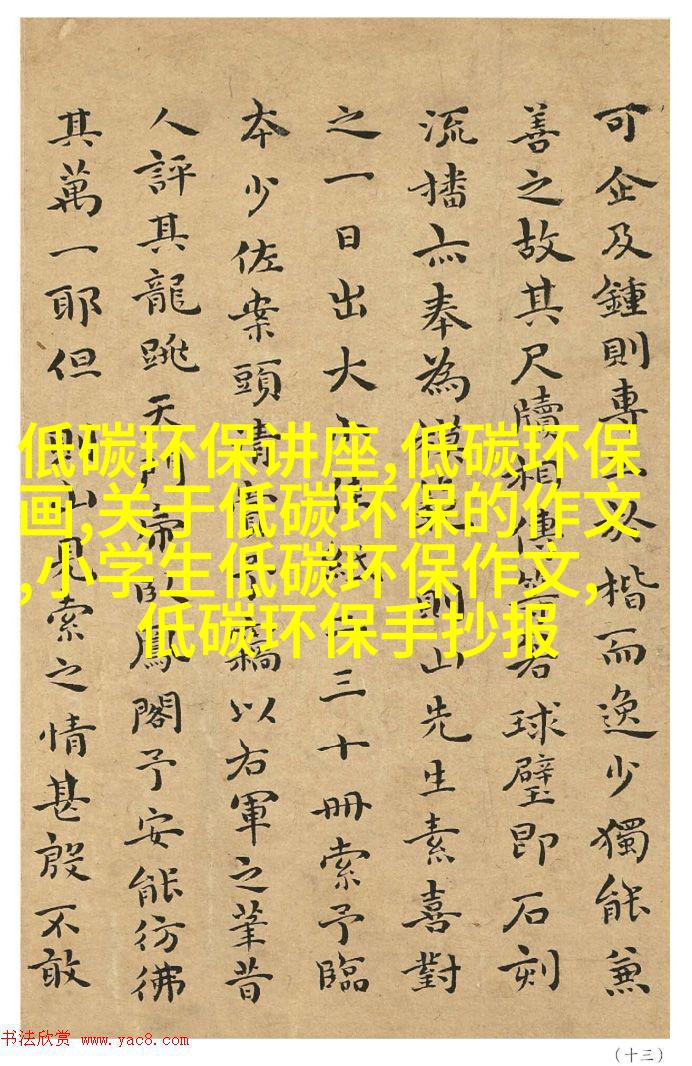 可企及鍾則專工於楷而逸少獨能兼
善之故其尺牘相傳等若球璧即石刻
流播亦奉為模楷則山先生素喜對
之一日出大小佳紙三十冊索予臨
本少佐案頭清賞予竊以右軍之筆昔
人評其龍跳天門虎臥鳳閣予安能彷彿
其萬一耶但則山見索之情甚殷不敢
低碳环保讲座,低碳环保
画,关于低碳环保的作文
,小学生低碳环保作文,
低碳环保手抄报
书法欣赏 www.yac8.com
（十三）